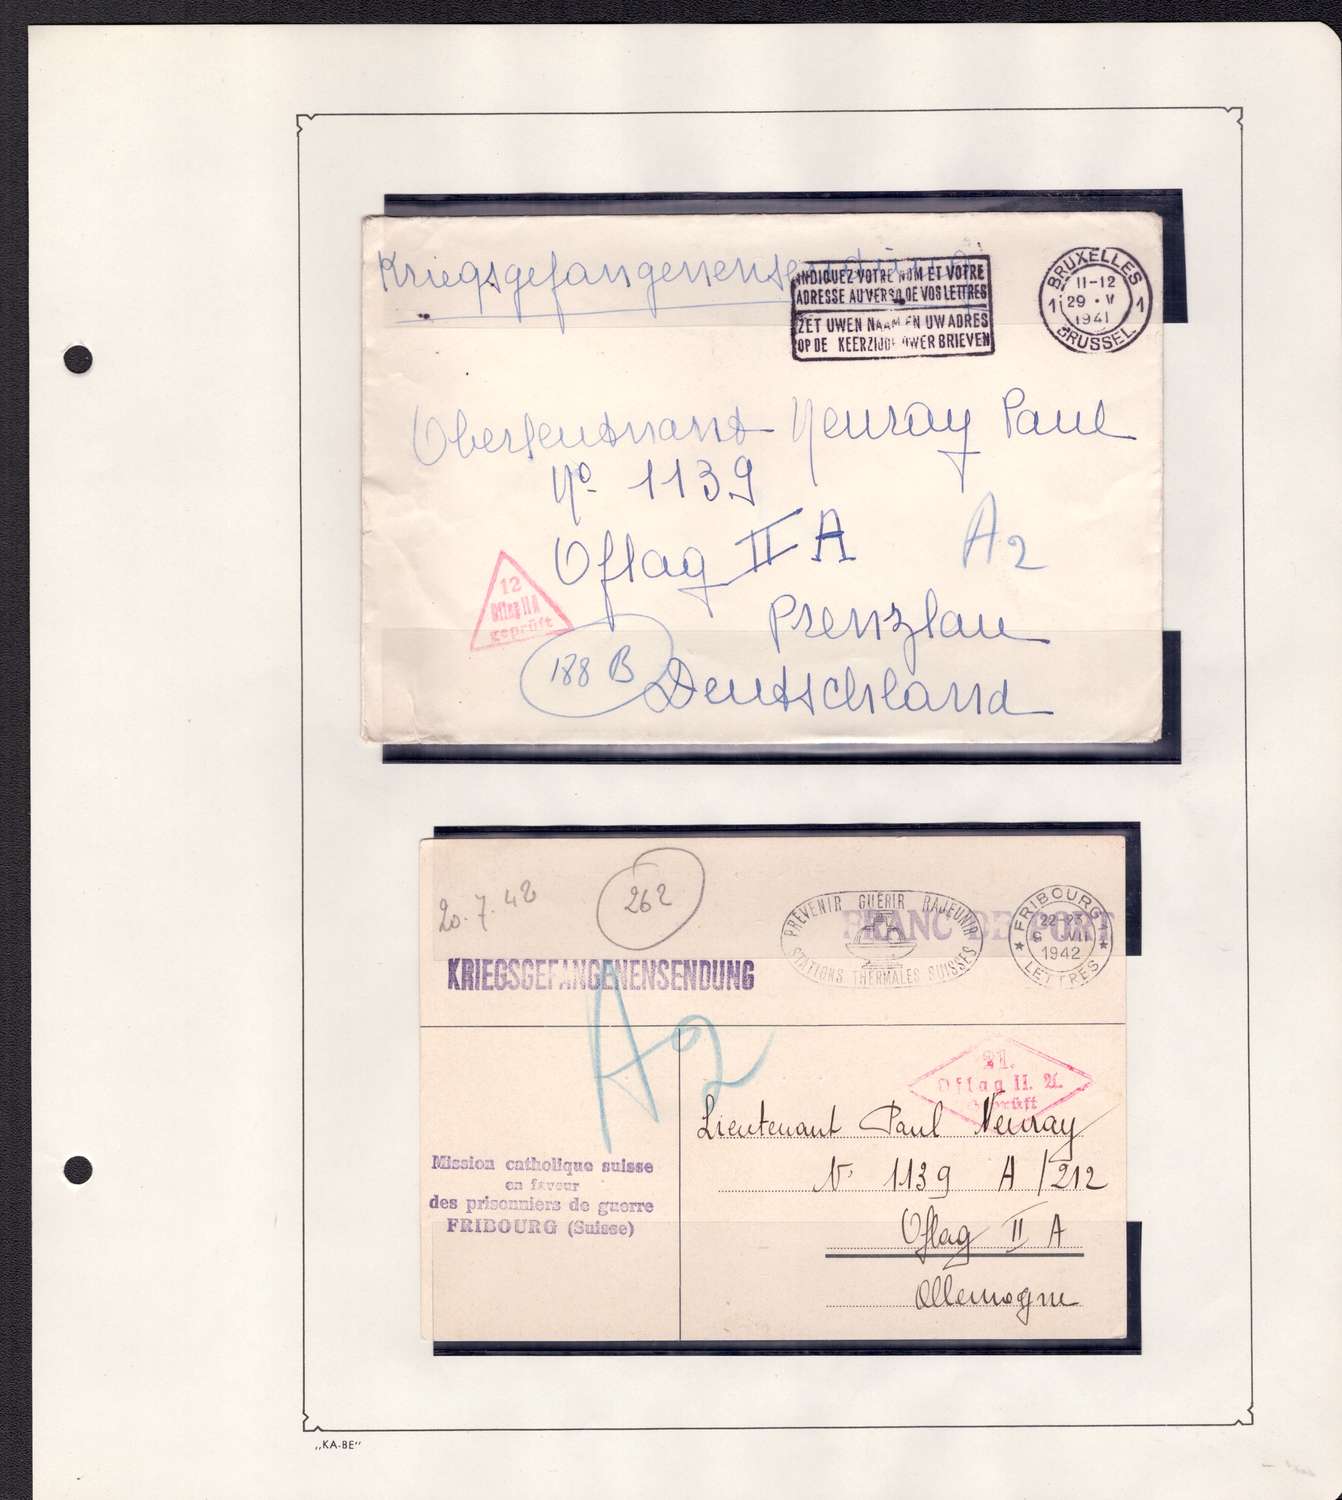 Kriegsgefangenensendung
INDIQUEZ VOTRE NOM ET VOTRE
ADRESSE AU VERSO DE VOS LETTRES
ZET UWEN NAAM EN UW ADRES
OP DE KEERZIJDE UWER BRIEVEN
BRUXELLES
11-12
1 29 · V 1
1941
BRUSSEL
Oberleutnant Neuray Paul
No 1139
Oflag II A
A2
12
Oflag II A
geprüft
Prenzlau
188 B
Deutschland
20.7.42
262
PRÉVENIR GUÉRIR RAJEUNIR
STATIONS THERMALES SUISSES
FRANC DE PORT
FRIBOURG
VII
1942
LETTRES
KRIEGSGEFANGENENSENDUNG
A2
21.
Oflag II. A.
geprüft
Lieutenant Paul Neuray
N° 1139 A/212
Oflag II A
Allemagne
Mission catholique suisse
en faveur
des prisonniers de guerre
FRIBOURG (Suisse)
„KA-BE"